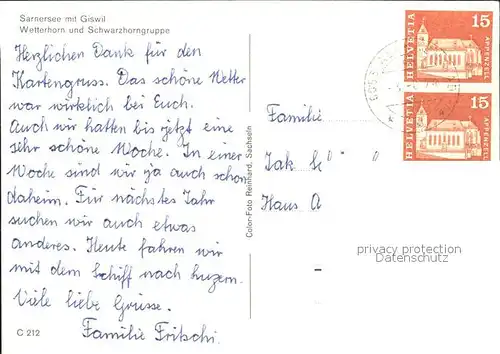 Sarnersee mit Giswil
Wetterhorn und Schwarzhorngruppe
Herzlichen Dank für den
Kartengruss. Das schöne Wetter
war wirklich bei Euch.
Auch wir hatten bis jetzt eine
sehr schöne Woche. In einer
Woche sind wir ja auch schon
daheim. Für nächstes Jahr
suchen wir auch etwas
anderes. Heute fahren wir
mit dem Schiff nach Luzern.
Viele liebe Grüsse.
Familie Fritschi
C 212
Color-Foto Reinhard, Sachseln
HELVETIA
15
APPENZELL
HELVETIA
15
APPENZELL
Familie
Jak
Haus A
privacy protection
Oldthing.de